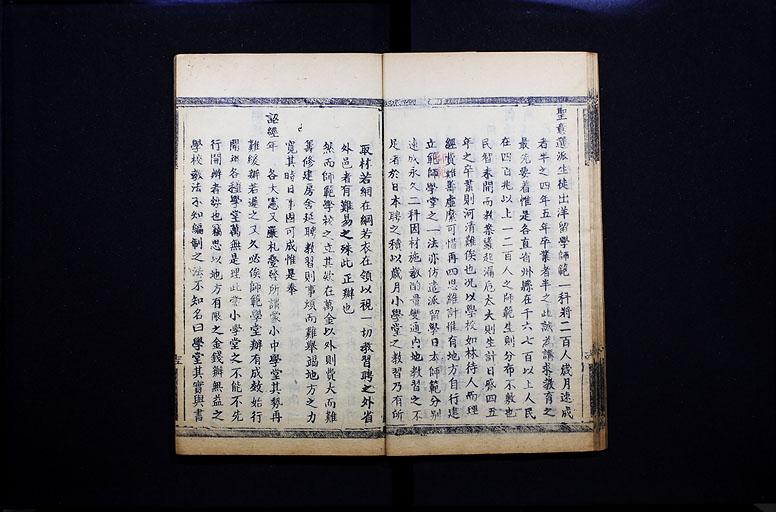 聖意選派生徒出洋留學師範一科將二百人歲月速成
者半之四年五年卒業者半之此誠為講求教育之
最先要着惟是各直省州縣在千六七百以上人民
在四百兆以上一二百人之師範生則分布不敷也
民智未開而教業緩起漏卮太大則生計日蹙四五
年之卒業則河清難俟也况以學校如林待人而理
經費難籌虛糜可惜再四思維計惟有地方自行建
立範師學堂之一法亦仿選派留學日本師範分別
速成永久二科因材施教酌量變通內地教習之不
足者於日本聘之積以歲月小學堂之教習乃有所
取材若網在綱若衣在領以視一切教習聘之外省
外邑者有難易之殊此正辦也
然而師範學校之立其款在萬金以外則費大而難
籌修建房舍延聘教習則事煩而難舉竭地方之力
寬其時日事固可成惟是奉
詔經年 各大憲又嚴札疊發所謂蒙小中學堂其勢再
難緩辦若遲之又久必俟師範學堂辦有成效始行
開辦各種學堂萬無是理此蒙小學堂之不能不先
行開辦者勢也竊思以地方有限之金錢辦無益之
學校教法不知編制之法不知名曰學堂其實與書